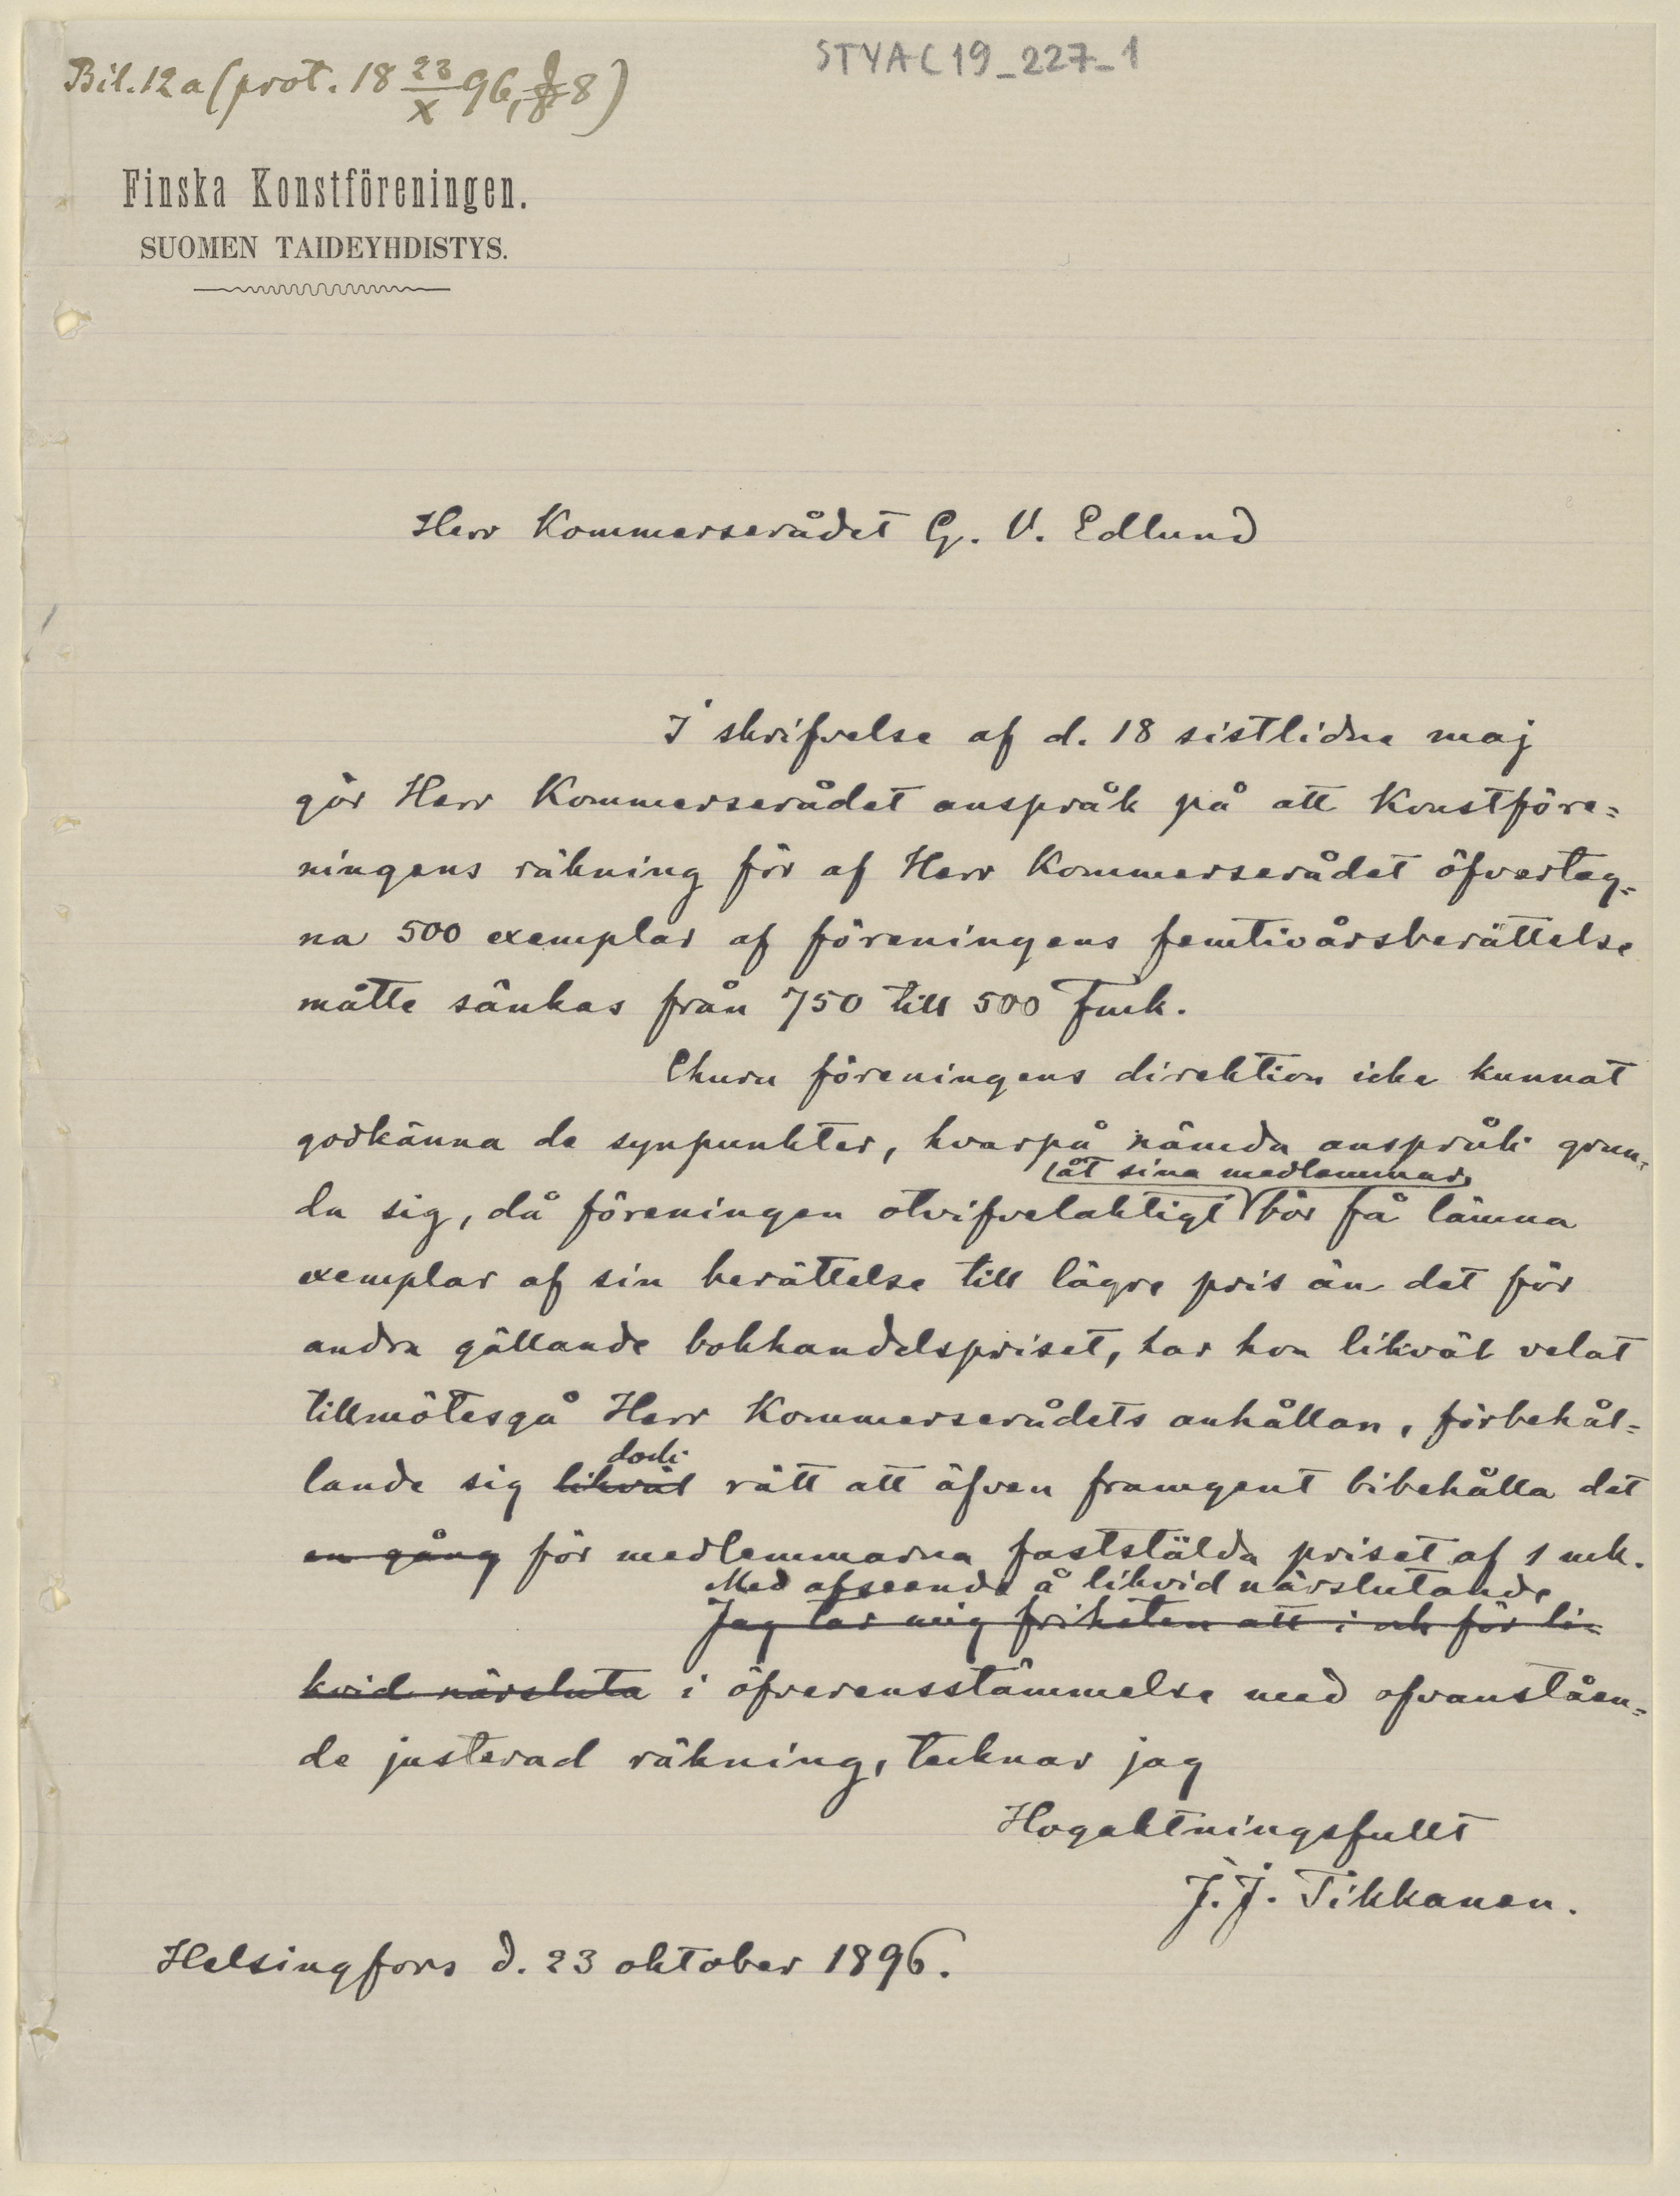 STYA C 19_227_1
Bil. 12 a (prot. 18 23/X 96, § 8)
Finska Konstföreningen.
SUOMEN TAIDEYHDISTYS.
Herr Kommerserådet G. V. Edlund
I skrifvelse af d. 18 sistlidne maj
gör Herr Kommerserådet anspråk på att Konstföre=
ningens räkning för af Herr Kommerserådet öfvertag=
na 500 exemplar af föreningens femtioårsberättelse
måtte sänkas från 750 till 500 Fmk.
Ehuru föreningens direktion icke kunnat
godkänna de synpunkter, hvarpå nämda anspråk grun=
åt sina medlemmar
da sig, då föreningen otvifvelaktigt bör få lämna
exemplar af sin berättelse till lägre pris än det för
andra gällande bokhandelspriset, har hon likväl velat
tillmötesgå Herr Kommerserådets anhållan, förbehål=
dock
lande sig likväl rätt att äfven framgent bibehålla det
en gång för medlemmarna faststälda priset af 1 mk.
Med afseende å likvid närslutande
Jag tar mig friheten att i och för li=
kvid närsluta i öfverensstämmelse med ofvanståen=
de justerad räkning, tecknar jag
Högaktningsfullt
J. J. Tikkanen.
Helsingfors d. 23 oktober 1896.